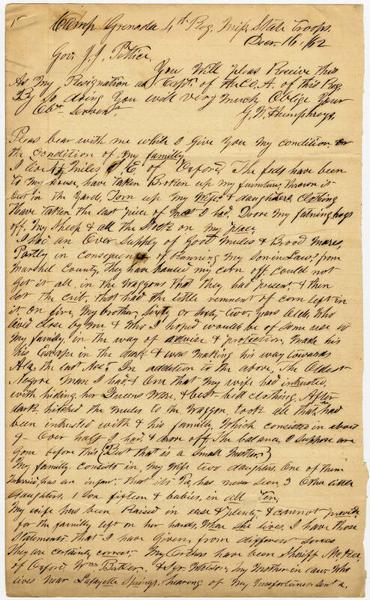 Camp Grenada 4th Reg. Miss State Troops.
Decr. 16, /62
Gov. J. J. Pettus,
You Will please Receive this
As My Resignation as Capt. of the Co. A. of this Reg.
By So doing You will very Much Oblige Your
Obt. Servant
G. W. Humphreys.
Pleas bear with me while I Give You My Condition, or
the Condition of my family.
I live miles of Oxford. The feds have been
to My house, have taken Broken up my furniture thrown it
out in the Yard, Torn up My Wife's & daughters Clothing
Have taken the last piece of Meat I had. Drove My fatning hogs
off, My Sheep & all the Stock on my place
I had an Over Supply of Good Mules & Brood Mares,
Partly in Consequence of Running My Son-in-Law's from
Marshall County, they have hauled my corn off could not
get it all in the Waggons that they had pressed, & then
Set the crib, that had the little remnent of corn left in
it on fire, My brother, Sixty or Sixty two, Years Old, Who
lived close by Me & Who I hoped would be of some use to
My family, in the way of advice & protection, Made his
his Escape in the dark & was making his way towards
Ala. the last Act. In addition to the above, the Oldest
Negroe Man I had & One that My wife had intrusted
with hiding her Queens Ware, & best bed clothing, After
dark hitched the Mules to the Waggon, took all that had
been intrusted with & his family, Which consisted in about
9 Over half I had & drove off. The balance I suppose are
gone before this (But that is a Small Matter)
My family consists in My Wife two daughters, One of them
Married, has an infant that its Pa, has never seen 3 Other little
daughters, 1 Son fifteen & babies, in all Ten,
My wife has been Raised in ease & plenty & cannot provide
for the family left on her hands, Where she lives, I have those
Statements that I have Given, from different sources
They are certainly correct. My Authors have been Sheriff
of Oxford Wm Butler, & Gr. My Mother in Law who
lives near Lafayette Springs, hearing of My Misfortunes sent a